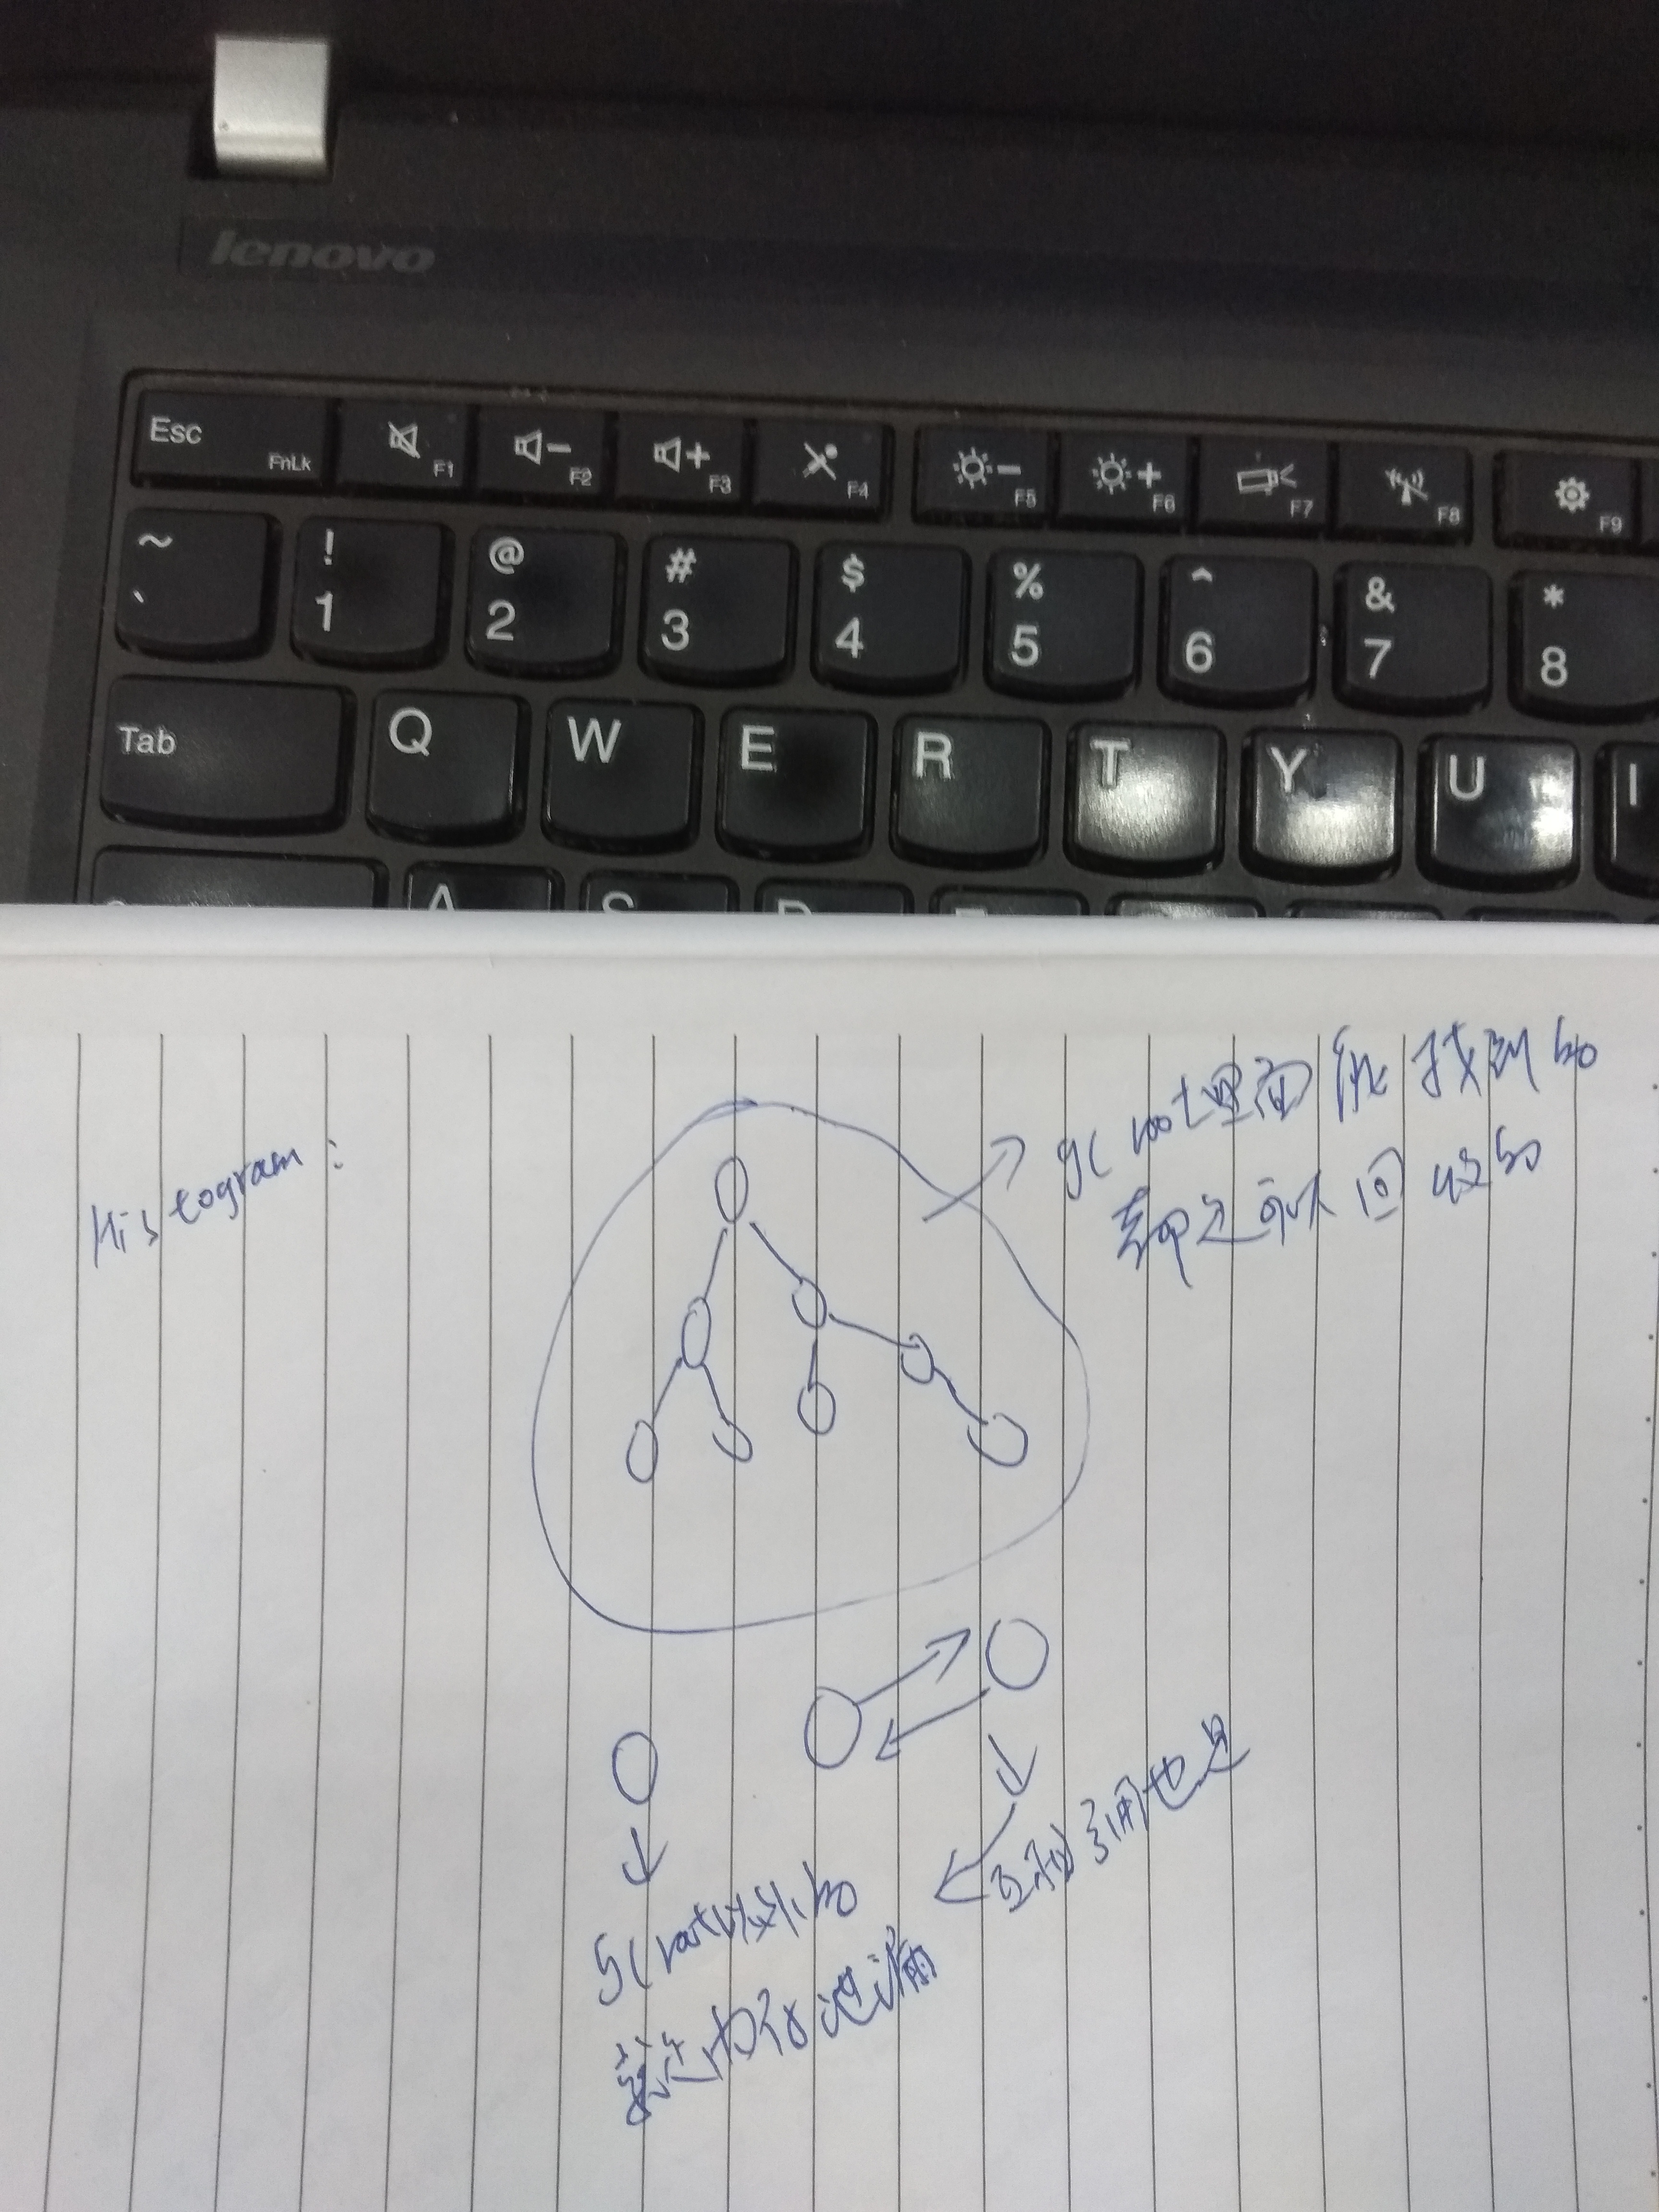 lenovo
Esc FnLk F1 F2 F3 F4 F5 F6 F7 F8 F9
~ ` ! 1 @ 2 # 3 $ 4 % 5 ^ 6 & 7 * 8
Tab Q W E R T Y U I
A S D
Histogram:
gc root里面能找到的
都是可以回收的
互相引用也是
gc root找不到的
就是内存泄漏